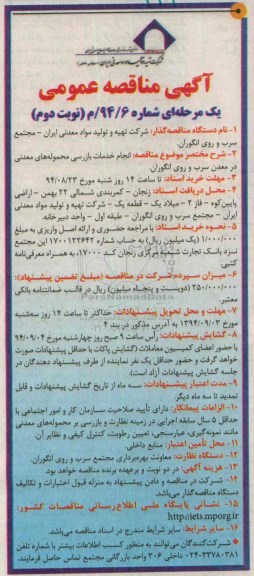 آگهی مناقصه عمومی
یک مرحله‌ای شماره ۹۴/۶/م (نوبت دوم)
۱- نام دستگاه مناقصه‌گذار: شرکت تهیه و تولید مواد معدنی ایران - مجتمع
سرب و روی انگوران.
۲- شرح مختصر موضوع مناقصه: انجام خدمات بازرسی محموله‌های معدنی
در معدن سرب و روی انگوران.
۳- مهلت خرید اسناد: تا ساعت ۱۴ روز شنبه مورخ ۹۴/۰۸/۲۳
۴- محل دریافت اسناد: زنجان - کمربندی شمالی ۲۲ بهمن - اراضی
پایین‌کوه - فاز ۲ - میلاد یک - قطعه یک - شرکت تهیه و تولید مواد معدنی
ایران - مجتمع سرب و روی انگوران - طبقه اول - واحد دبیرخانه.
۵- نحوه خرید اسناد: با مراجعه حضوری و ارائه اصل واریزی به مبلغ
۱/۰۰۰/۰۰۰ (یک میلیون ریال) به حساب شماره ۱۷۰۰۱۲۲۶۴۲ این مجتمع
نزد بانک تجارت شعبه مرکزی زنجان کد ۱۷۰۰۰، به همراه معرفی‌نامه
کتبی.
۶- میزان سپرده شرکت در مناقصه (مبلغ تضمین پیشنهاد):
۲۵۰/۰۰۰/۰۰۰ (دویست و پنجاه میلیون) ریال در قالب ضمانتنامه بانکی
معتبر.
۷- مهلت و محل تحویل پیشنهادات: حداکثر تا ساعت ۱۴ روز سه‌شنبه
مورخ ۱۳۹۴/۰۹/۰۳ به آدرس مذکور در بند ۴
۸- گشایش پیشنهادات: رأس ساعت ۹ صبح روز چهارشنبه مورخ ۹۴/۰۹/۰۴
با حضور اعضای کمیسیون معاملات (گشایش پاکات با حداقل پیشنهادات صورت
خواهد گرفت و حضور حداقل یک نفر نماینده از طرف پیشنهاد دهندگان در
جلسه گشایش پیشنهادات آزاد است).
۹- مدت اعتبار پیشنهادات: سه ماه از تاریخ گشایش پیشنهادات و قابل
تمدید تا سه ماه دیگر.
۱۰- الزامات پیمانکار: دارای تأیید صلاحیت سازمان کار و امور اجتماعی با
حداقل ۵ سال سابقه اجرایی در زمینه نظارت و بازرسی بر محموله‌های معدنی
مانند نمونه‌گیری، عیارسنجی، تعیین رطوبت، کنترل کیفی و نظایر آن.
۱۱- محل تأمین اعتبار: منابع داخلی.
۱۲- دستگاه نظارت: معاونت بهره‌برداری مجتمع سرب و روی انگوران.
۱۳- هزینه آگهی: در دو نوبت و برعهده برنده مناقصه خواهد بود.
۱۴- شرکت در مناقصه و دادن پیشنهاد به منزله قبول اختیارات و تکالیف
دستگاه مناقصه‌گذار می‌باشد.
۱۵- نشانی پایگاه ملی اطلاع‌رسانی مناقصات کشور:
http://iets.mporg.ir
۱۶- سایر شرایط: سایر شرایط مندرج در اسناد مناقصه می‌باشد.
شرکت‌کنندگان می‌توانند به منظور کسب اطلاعات بیشتر با شماره تلفن
۰۲۴-۳۳۷۸۰۳۸۱ داخلی ۳۰۶ واحد بازرگانی مجتمع تماس حاصل فرمایند.